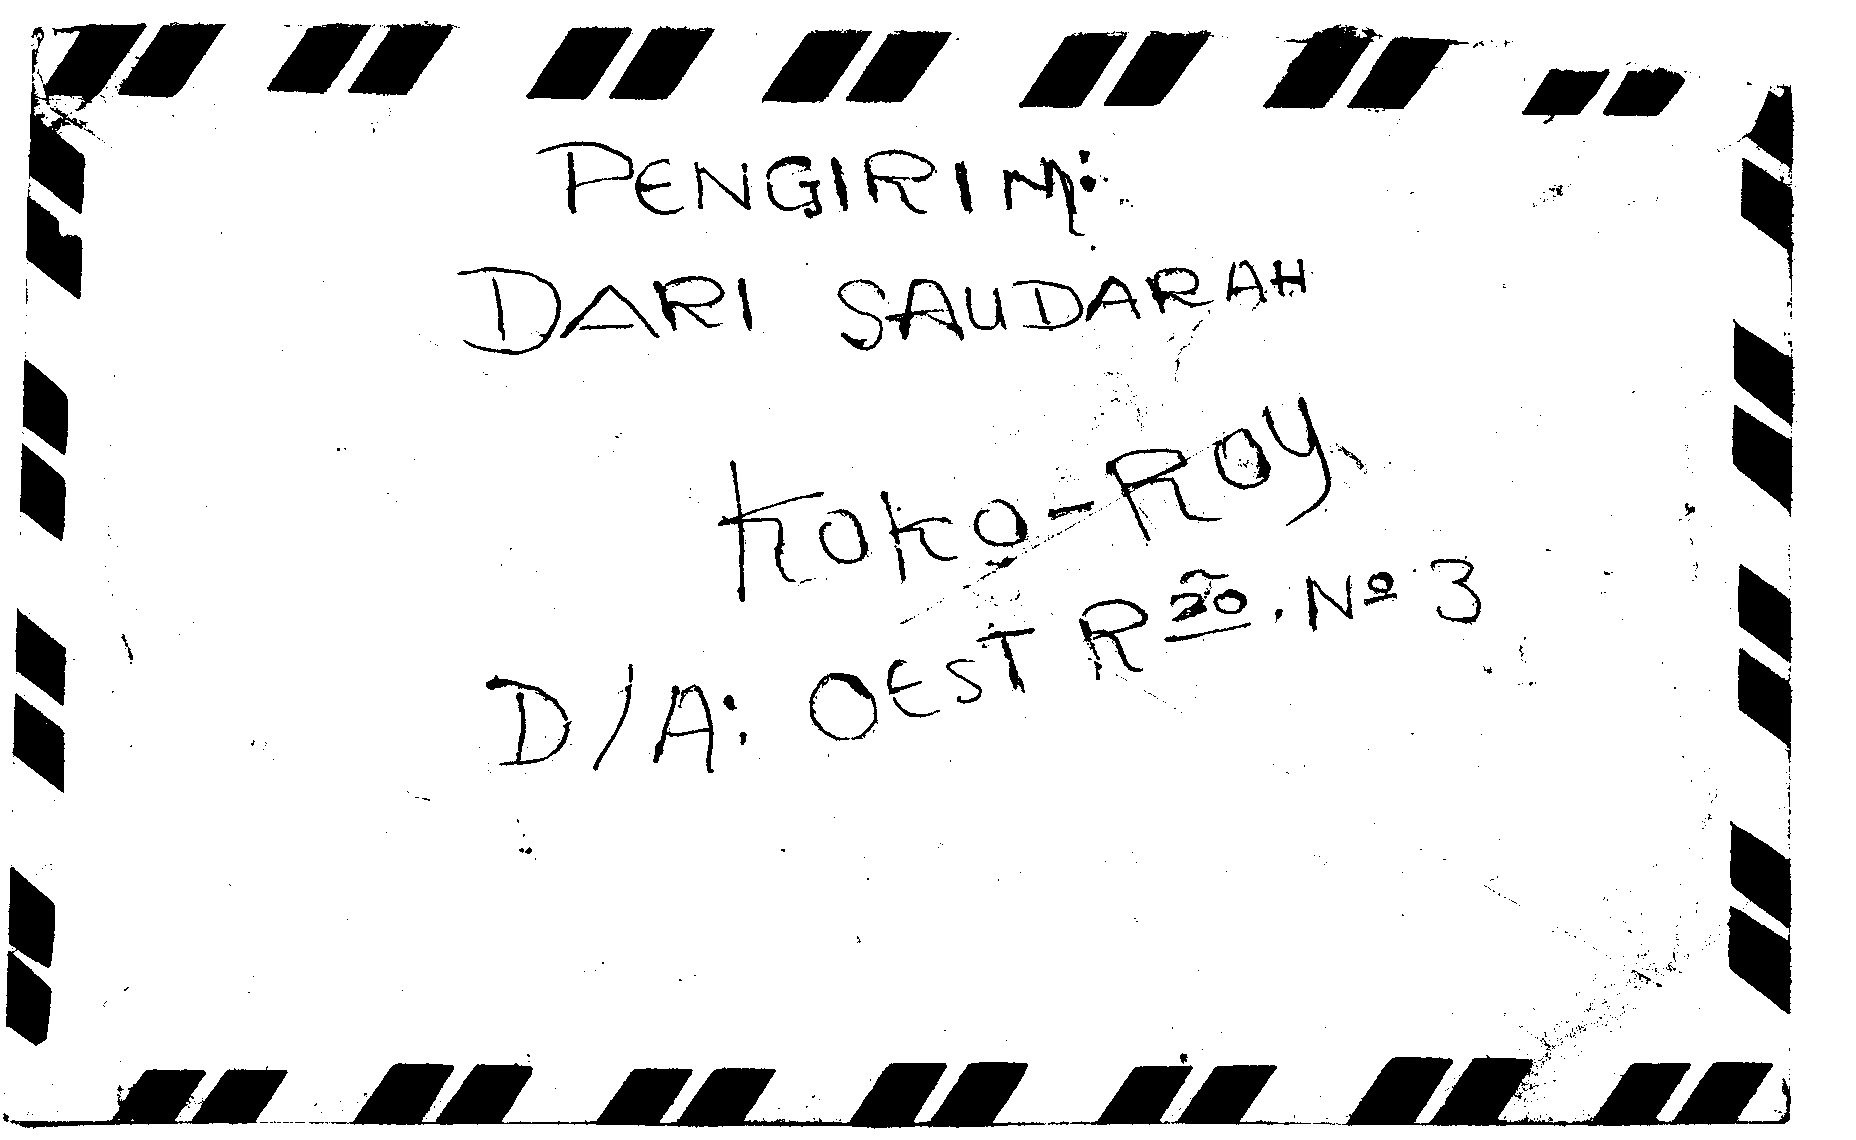 PENGIRIM:
DARI SAUDARAH
KOKO-ROY
D/A: OEST R20. Nº 3